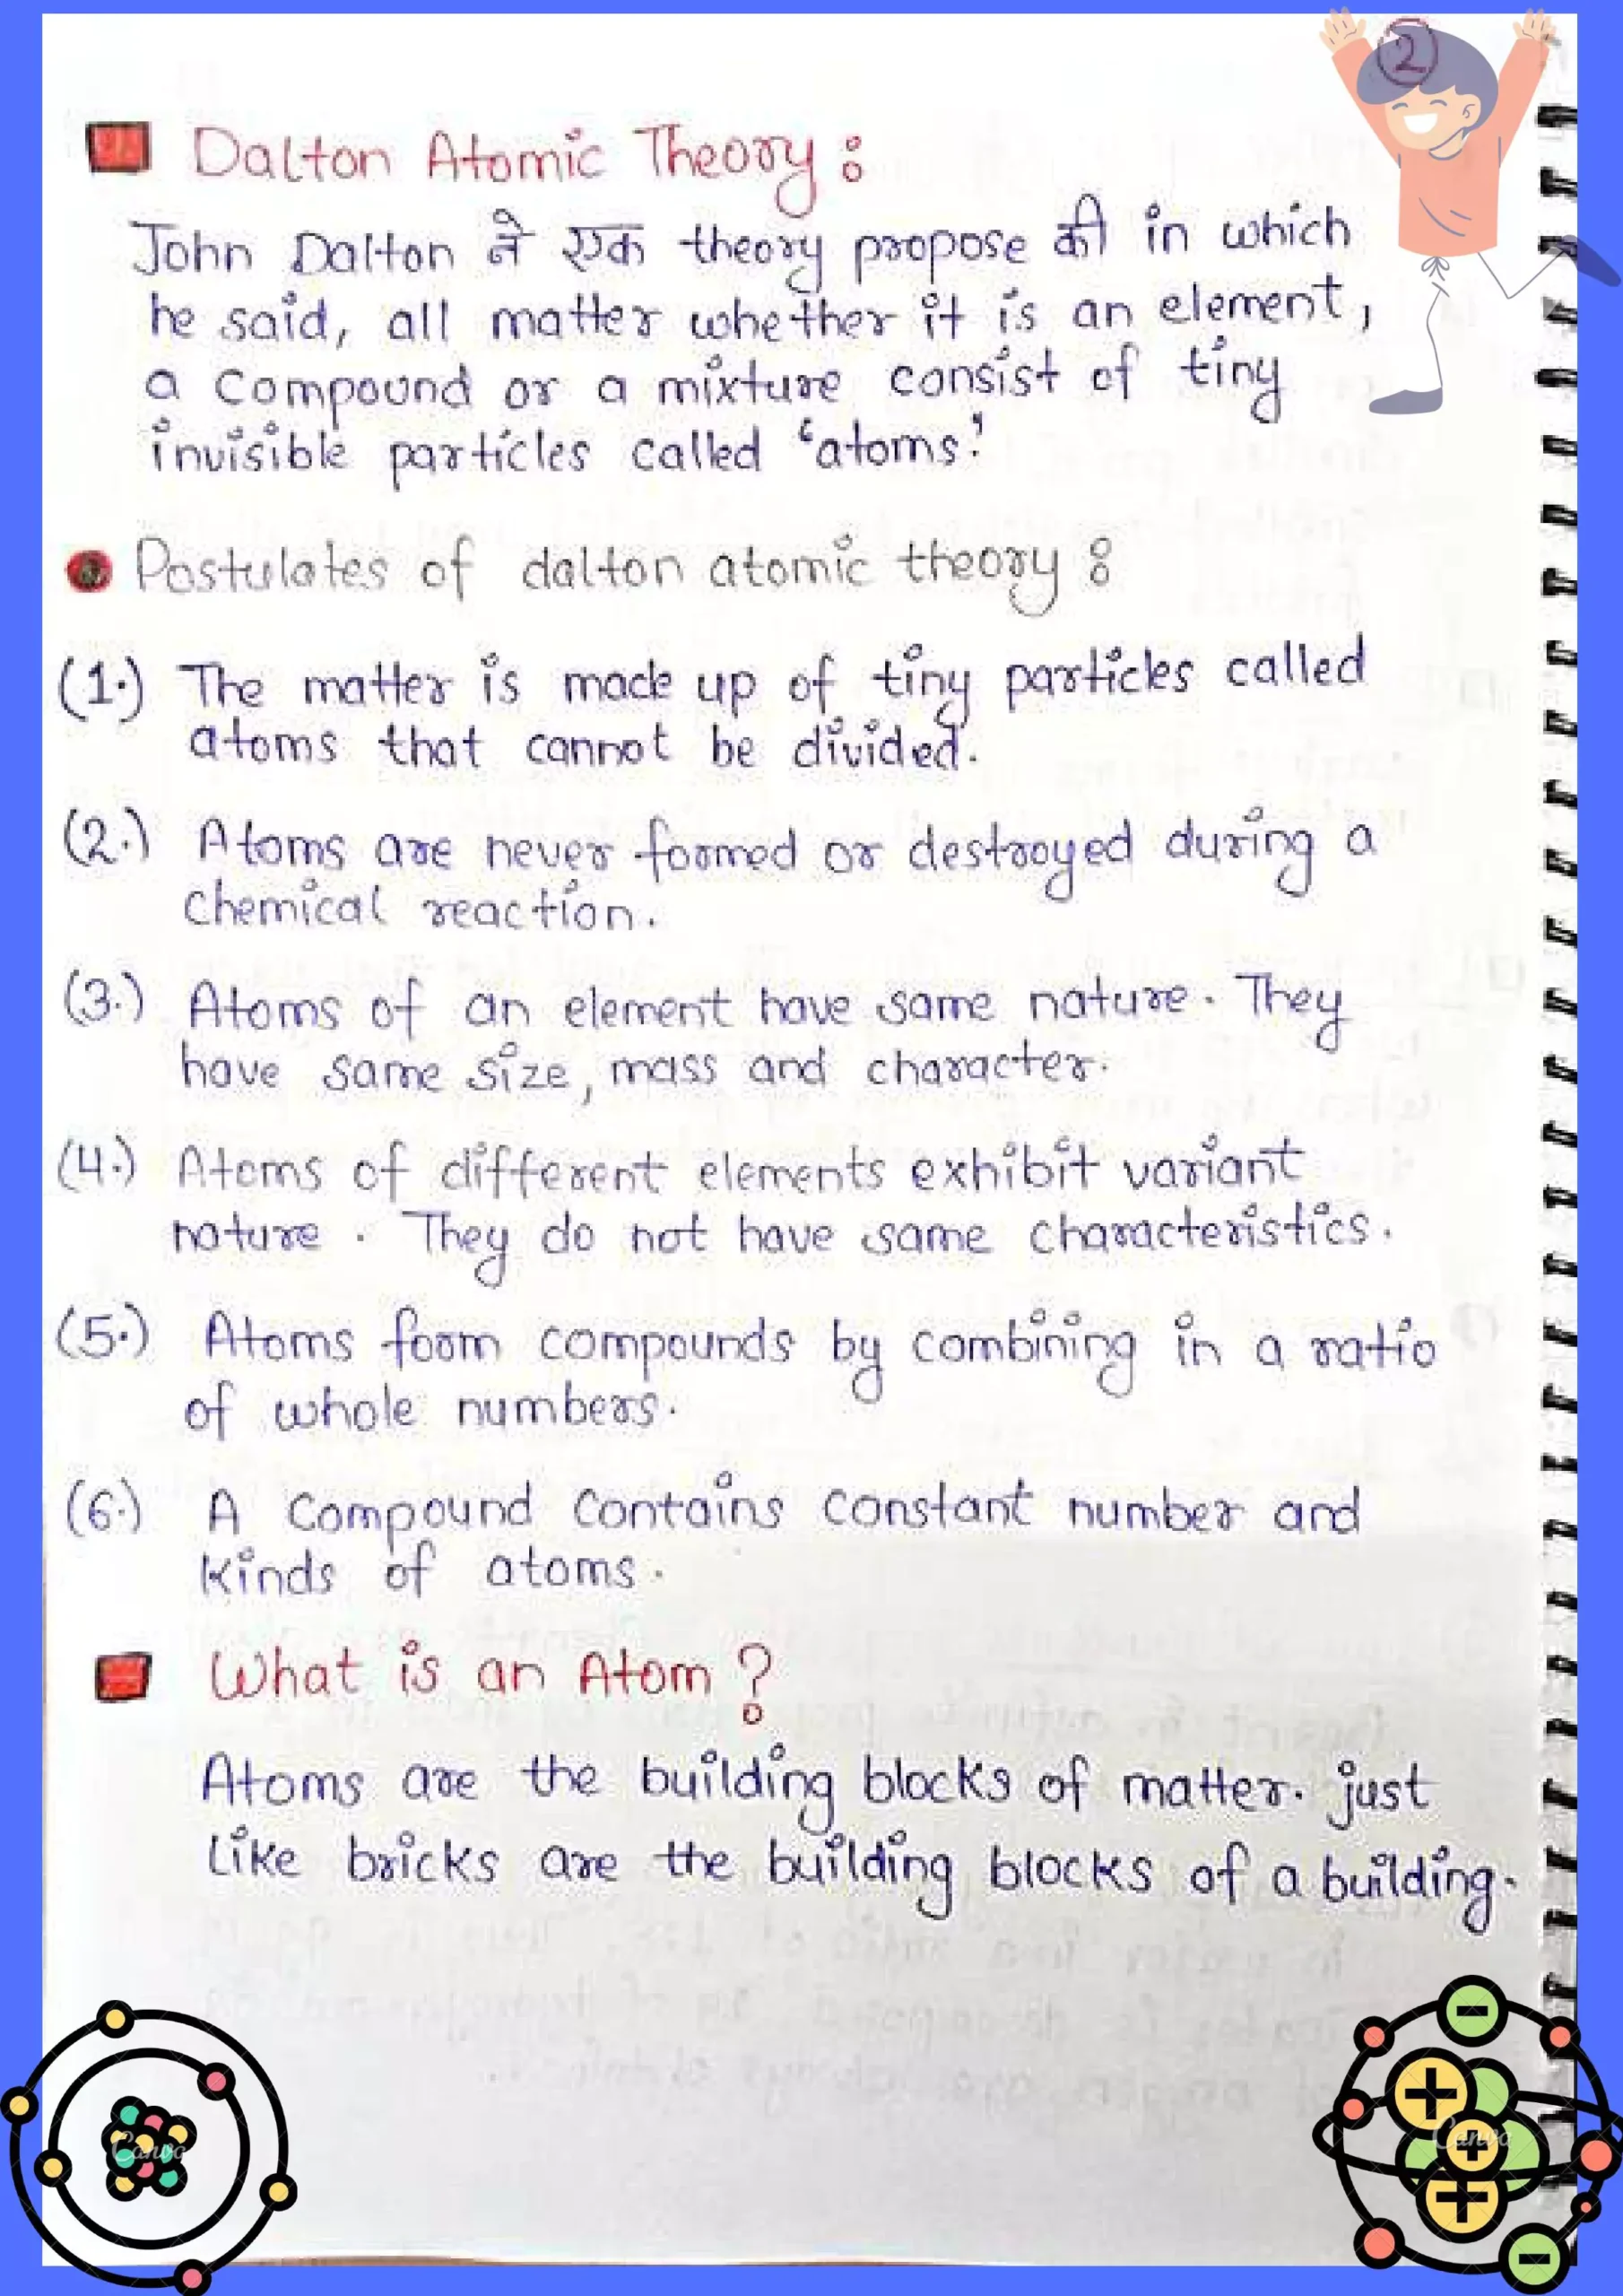 2
Dalton Atomic Theory :
John Dalton ने एक theory propose की in which
he said, all matter whether it is an element,
a compound or a mixture consist of tiny
invisible particles called 'atoms'.
Postulates of dalton atomic theory :
(1.) The matter is made up of tiny particles called
atoms that cannot be divided.
(2.) Atoms are never formed or destroyed during a
chemical reaction.
(3.) Atoms of an element have same nature. They
have same size, mass and character.
(4.) Atoms of different elements exhibit variant
nature. They do not have same characteristics.
(5.) Atoms form compounds by combining in a ratio
of whole numbers.
(6.) A compound contains constant number and
kinds of atoms.
What is an Atom ?
Atoms are the building blocks of matter. just
like bricks are the building blocks of a building.
Canva
Canva